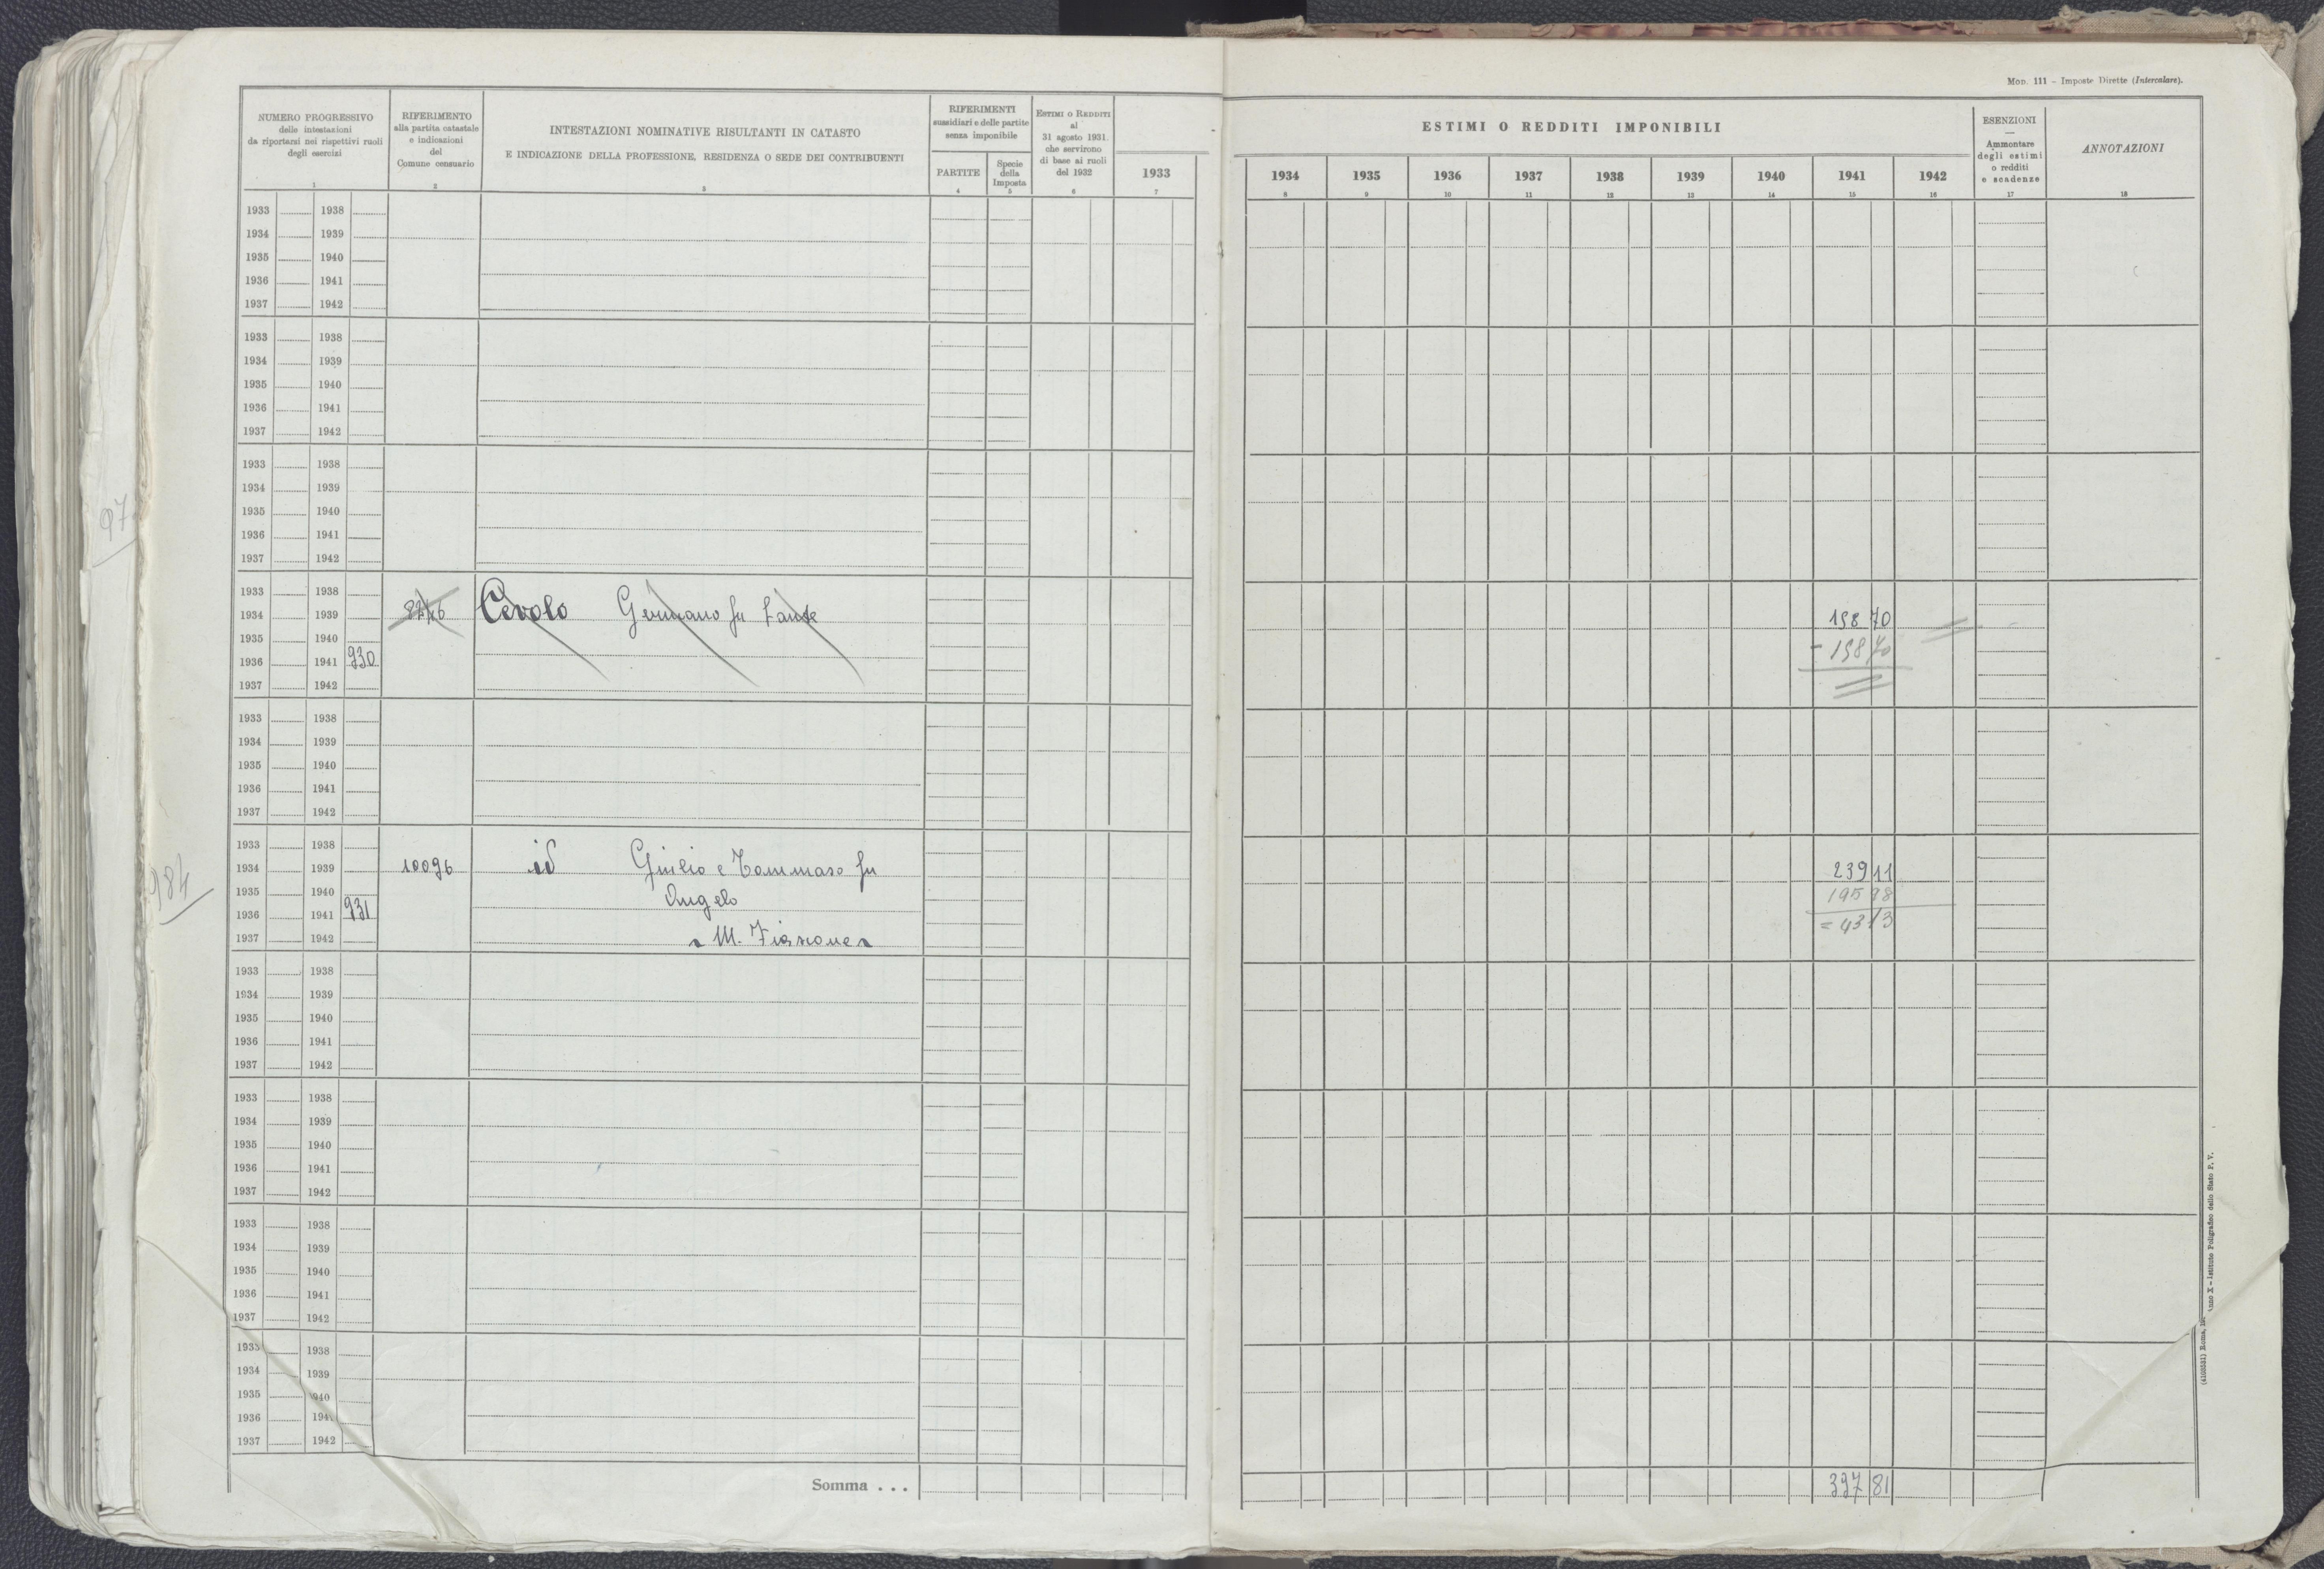 Mod. 111 – Imposte Dirette (Intercalare).
NUMERO PROGRESSIVO
delle intestazioni
da riportarsi nei rispettivi ruoli
degli esercizi
1
RIFERIMENTO
alla partita catastale
e indicazioni
del
Comune censuario
2
INTESTAZIONI NOMINATIVE RISULTANTI IN CATASTO
E INDICAZIONE DELLA PROFESSIONE, RESIDENZA O SEDE DEI CONTRIBUENTI
3
RIFERIMENTI
sussidiari e delle partite
senza imponibile
PARTITE
4
Specie
della
Imposta
5
Estimi o Redditi
al
31 agosto 1931.
che servirono
di base ai ruoli
del 1932
6
1933
7
ESTIMI O REDDITI IMPONIBILI
1934 1935 1936 1937 1938 1939 1940 1941 1942
8 9 10 11 12 13 14 15 16
ESENZIONI
—
Ammontare
degli estimi
o redditi
e scadenze
17
ANNOTAZIONI
18
1933 1938
1934 1939
1935 1940
1936 1941
1937 1942
1933 1938
1934 1939
1935 1940
1936 1941
1937 1942
1933 1938
1934 1939
1935 1940
1936 1941
1937 1942
97
1933 1938
1934 1939 8246 Cevolo Germano fu Sante 158 70
1935 1940 - 158 70
1936 1941 930
1937 1942
1933 1938
1934 1939
1935 1940
1936 1941
1937 1942
984
1933 1938
1934 1939 10096 id Giulio e Tommaso fu 239 11
1935 1940 Angelo 195 98
1936 1941 931 = 43 13
1937 1942 M. Fiascone
1933 1938
1934 1939
1935 1940
1936 1941
1937 1942
1933 1938
1934 1939
1935 1940
1936 1941
1937 1942
1933 1938
1934 1939
1935 1940
1936 1941
1937 1942
1933 1938
1934 1939
1935 1940
1936 1941
1937 1942
Somma . . . 397 81
Anno X – Istituto Poligrafico dello Stato P. V.